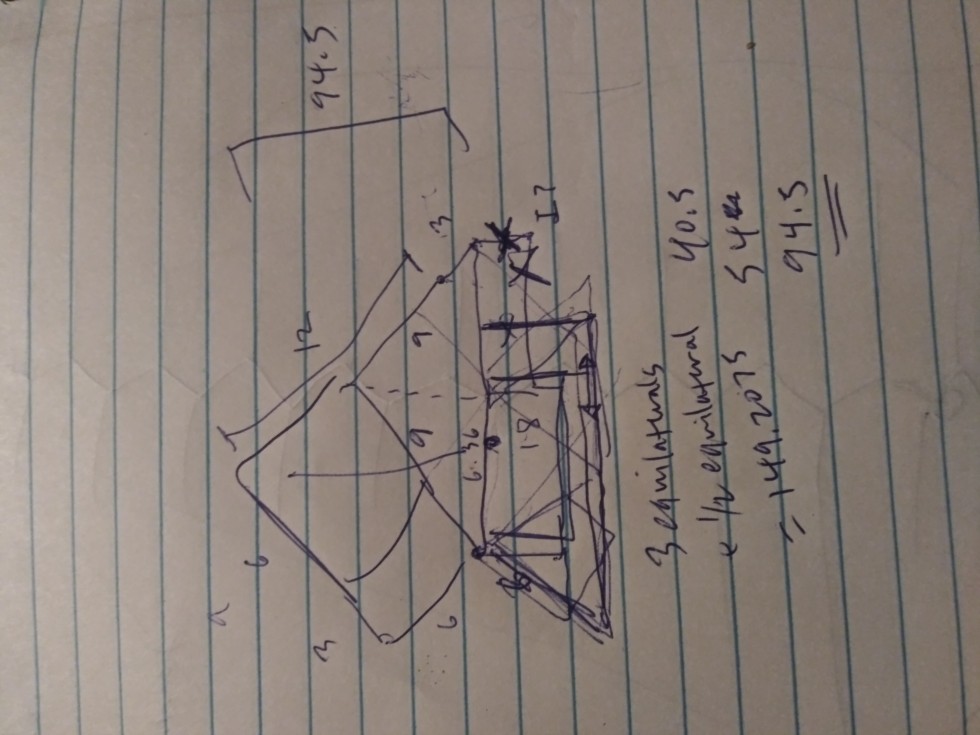 94.5
12
3
9
9
6
6
3
6.36
18
3 equilaterals
+ 1/2 equilateral
= 149.2075
40.5
54
94.5